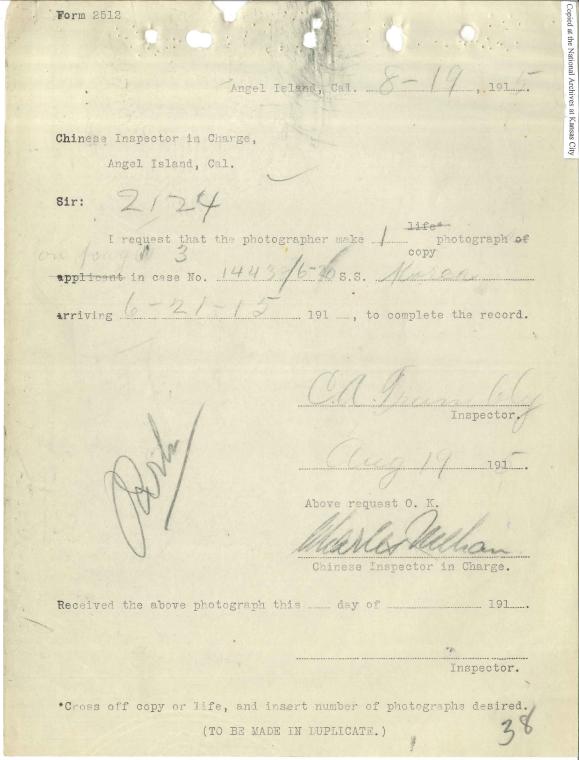 Form 2512
Copied at the National Archives at Kansas City
Angel Island, Cal. 8-19, 1915.
Chinese Inspector in Charge,
Angel Island, Cal.
Sir: 2124
life*
I request that the photographer make 1 photograph of
copy
on page 3
applicant in case No. 14437/6-20 S.S.
arriving 6-21-15 191 , to complete the record.
C.A.
Inspector.
Aug 19 1915.
Above request O. K.
Charles
Chinese Inspector in Charge.
Received the above photograph this day of 191 .
Inspector.
*Cross off copy or life, and insert number of photographs desired.
(TO BE MADE IN DUPLICATE.)
38